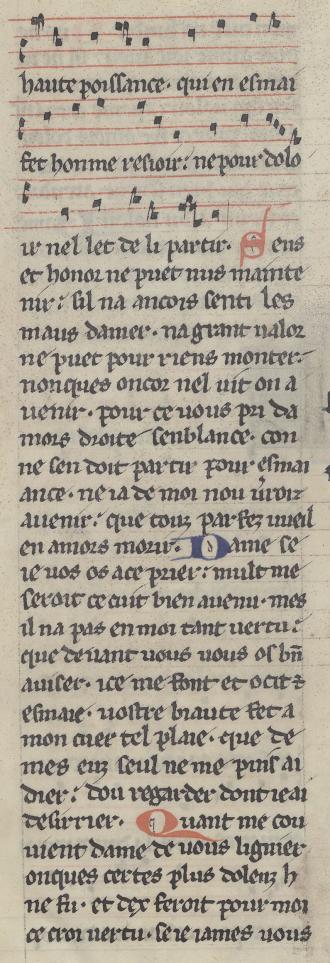 haute poissance. qui en esmai
fet homme resioir: ne pour dolo
ir nel let de li partir. Sens
et honor ne puet nus mainte
nir: sil na ancois senti les
maus damer. na grant ualor
ne puet pour riens monter:
nonques oncor nel uit on a
uenir. pour ce uous pri da
mors droite senblance. con
ne sen doit partir pour esmai
ance. ne ia de moi nou uroiz
auenir: que touz parfez uueil
en amors morir. Dame se
ie uos os ace prier: mult me
seroit ce cuit bien auenu. mes
il na pas en moi tant uertu:
que deuant uous uous os bn
auiser. ice me font et ocit
esmaie. uostre biaute fet a
mon cuer tel plaie. que de
mes euz seul ne me puis ai
dier: dou regarder dont ie ai
desirrier. Quant me cou
uient dame de uous lignier
onques certes plus dolenz h
ne fu. et dex feroit pour moi
ce croi uertu. se ie iames uous